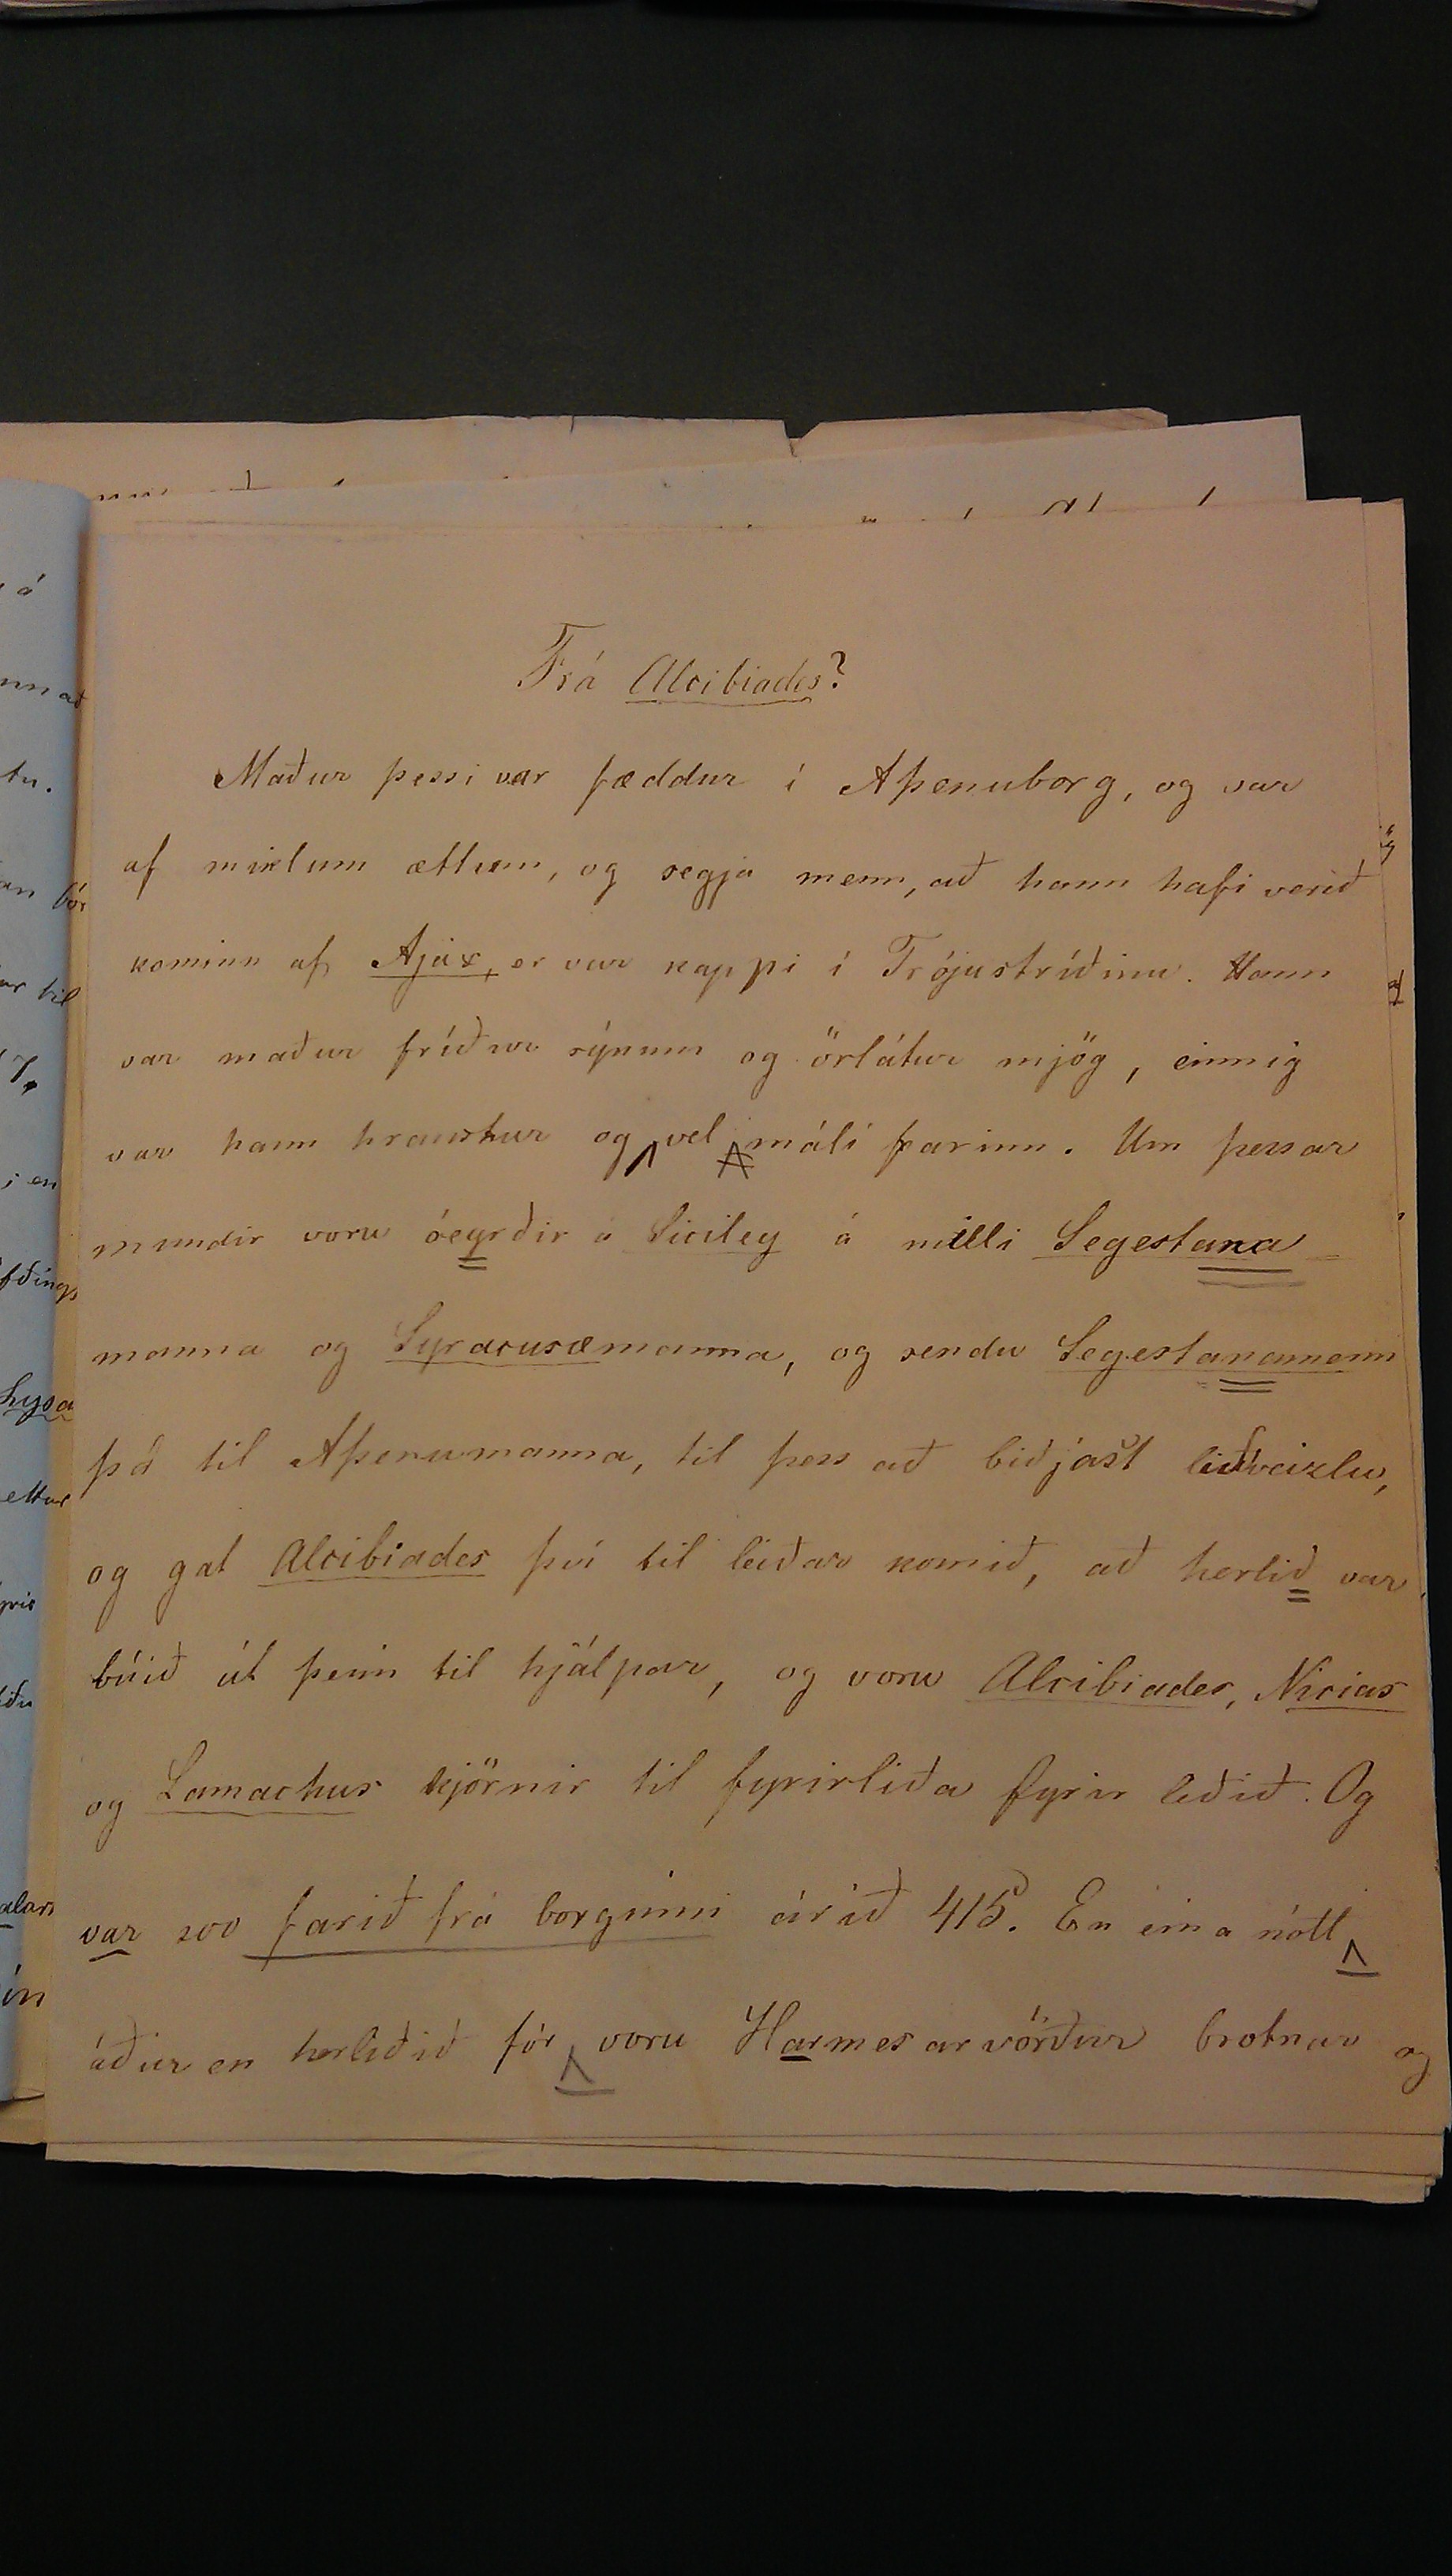 Frá Alcibiades?
Maður þessi var fæddur í Aþenuborg, og var
af miklum ættum, og segja menn, að hann hafi verið
kominn af Ajax, er var kappi í Trójustríðinu. Hann
var maður fríður sýnum og örlátur mjög, einnig
var hann hraustur og vel máli farinn. Um þessar
mundir voru óeyrðir á Siciley á milli Segestana
manna og Syracusæmanna, og sendu Segestanamenn
þá til Aþenumanna, til þess að biðjast liðveizlu,
og gat Alcibiades því til leiðar komið, að herlið var
búið út þeim til hjálpar, og voru Alcibiades, Nicias
og Lamachus kjörnir til fyrirliða fyrir liðið. Og
var svo farið frá borginni árið 415. En eina nótt
áður en herliðið fór, voru Harmesarvörður brotnar og